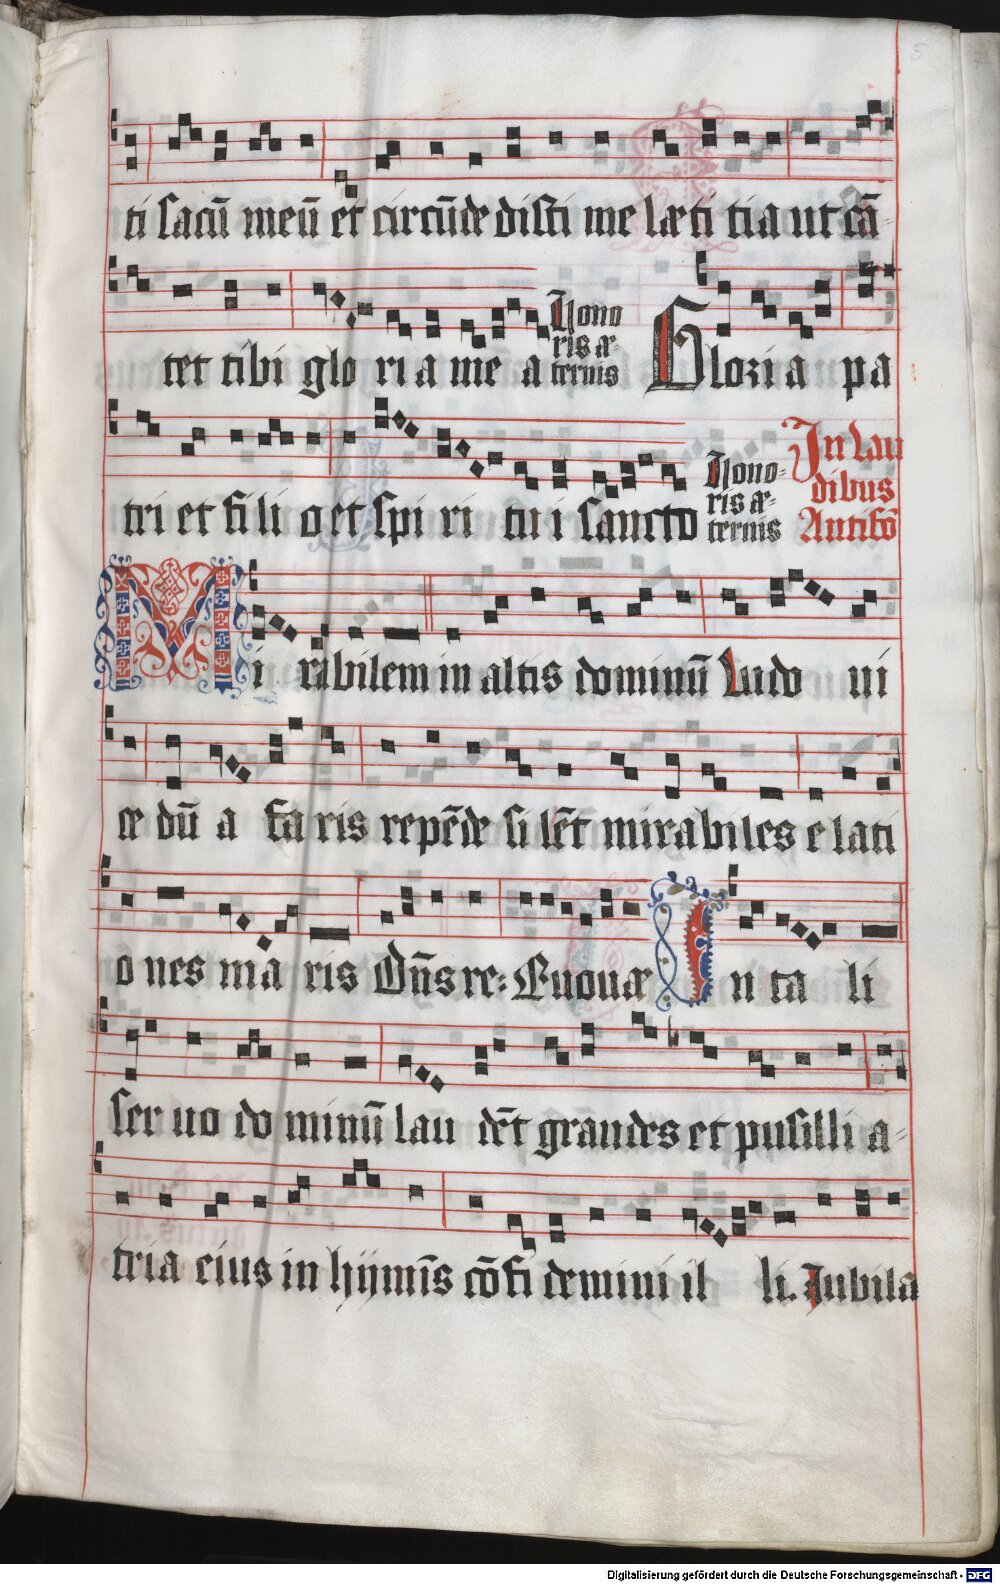 5
ti sacū meū et circūde disti me læti tia ut cā=
tet tibi glo ri a me a Hono
ris æ=
ternis Glori a pa
tri et fi li o et spi ri tu i sancto Hono=
ris æ=
ternis In Lau
dibus
Antifō
Mi rabilem in altis dominū Ludo ui
ce dū a fa ris repēde si lēt mirabiles e lati
o nes ma ris Dn̄s re: Euouæ In ta li
ser uo do minū lau dēt grandes et pusilli a=
tria eius in hijmīs cōfi demini il li. Iubila
Digitalisierung gefördert durch die Deutsche Forschungsgemeinschaft - DFG